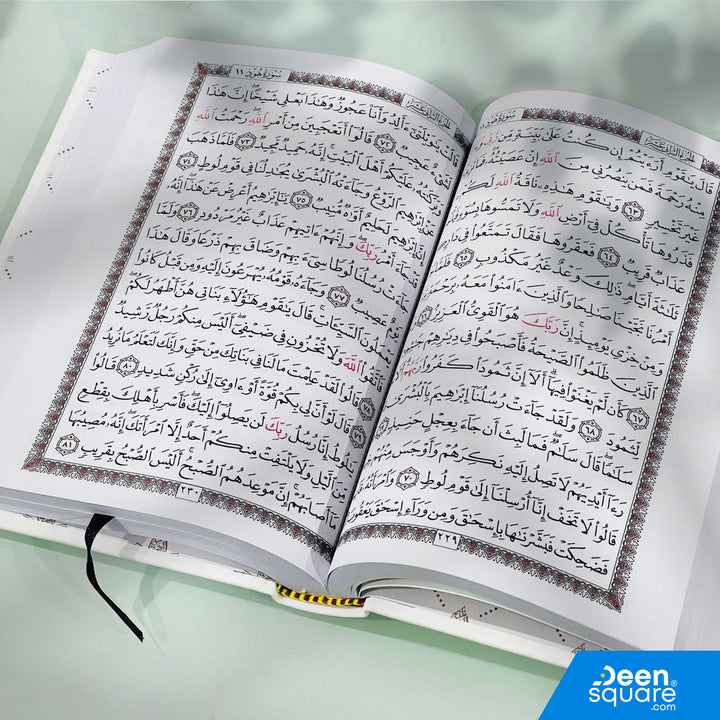 الجزء الثاني عشر سورة هود ١١
قَالَ يَٰقَوْمِ أَرَءَيْتُمْ إِن كُنتُ عَلَىٰ بَيِّنَةٍ مِّن رَّبِّى
مِنْهُ رَحْمَةً فَمَن يَنصُرُنِى مِنَ ٱللَّهِ إِنْ عَصَيْتُهُۥ فَمَا
غَيْرَ تَخْسِيرٍ ٦٣ وَيَٰقَوْمِ هَٰذِهِۦ نَاقَةُ ٱللَّهِ لَكُمْ
فَذَرُوهَا تَأْكُلْ فِىٓ أَرْضِ ٱللَّهِ وَلَا تَمَسُّوهَا بِسُوٓءٍ
عَذَابٌ قَرِيبٌ ٦٤ فَعَقَرُوهَا فَقَالَ تَمَتَّعُوا۟ فِى دَارِكُمْ
ثَلَٰثَةَ أَيَّامٍ ۖ ذَٰلِكَ وَعْدٌ غَيْرُ مَكْذُوبٍ ٦٥
أَمْرُنَا نَجَّيْنَا صَٰلِحًا وَٱلَّذِينَ ءَامَنُوا۟ مَعَهُۥ بِرَحْمَةٍ
وَمِنْ خِزْىِ يَوْمِئِذٍ ۗ إِنَّ رَبَّكَ هُوَ ٱلْقَوِىُّ ٱلْعَزِيزُ ٦٦
ٱلَّذِينَ ظَلَمُوا۟ ٱلصَّيْحَةُ فَأَصْبَحُوا۟ فِى دِيَٰرِهِمْ جَٰثِمِينَ ٦٧
كَأَن لَّمْ يَغْنَوْا۟ فِيهَآ ۗ أَلَآ إِنَّ ثَمُودَا۟ كَفَرُوا۟ رَبَّهُمْ ۗ أَلَا
لِّثَمُودَ ٦٨ وَلَقَدْ جَآءَتْ رُسُلُنَآ إِبْرَٰهِيمَ بِٱلْبُشْرَىٰ
سَلَٰمًا ۖ قَالَ سَلَٰمٌ ۖ فَمَا لَبِثَ أَن جَآءَ بِعِجْلٍ حَنِيذٍ ٦٩
رَءَآ أَيْدِيَهُمْ لَا تَصِلُ إِلَيْهِ نَكِرَهُمْ وَأَوْجَسَ مِنْهُمْ
قَالُوا۟ لَا تَخَفْ إِنَّآ أُرْسِلْنَآ إِلَىٰ قَوْمِ لُوطٍ ٧٠ وَٱمْرَأَتُهُۥ
فَضَحِكَتْ فَبَشَّرْنَٰهَا بِإِسْحَٰقَ وَمِن وَرَآءِ إِسْحَٰقَ يَعْقُوبَ
٢٢٩
الجزء الثاني عشر سورة هود ١١
قَالَتْ يَٰوَيْلَتَىٰٓ ءَأَلِدُ وَأَنَا۠ عَجُوزٌ وَهَٰذَا بَعْلِى شَيْخًا ۖ إِنَّ هَٰذَا
لَشَىْءٌ عَجِيبٌ ٧٢ قَالُوٓا۟ أَتَعْجَبِينَ مِنْ أَمْرِ ٱللَّهِ ۖ رَحْمَتُ ٱللَّهِ
وَبَرَكَٰتُهُۥ عَلَيْكُمْ أَهْلَ ٱلْبَيْتِ ۚ إِنَّهُۥ حَمِيدٌ مَّجِيدٌ ٧٣ فَلَمَّا ذَهَبَ
عَنْ إِبْرَٰهِيمَ ٱلرَّوْعُ وَجَآءَتْهُ ٱلْبُشْرَىٰ يُجَٰدِلُنَا فِى قَوْمِ لُوطٍ ٧٤
إِنَّ إِبْرَٰهِيمَ لَحَلِيمٌ أَوَّٰهٌ مُّنِيبٌ ٧٥ يَٰٓإِبْرَٰهِيمُ أَعْرِضْ عَنْ هَٰذَآ ۖ إِنَّهُۥ
قَدْ جَآءَ أَمْرُ رَبِّكَ ۖ وَإِنَّهُمْ ءَاتِيهِمْ عَذَابٌ غَيْرُ مَرْدُودٍ ٧٦ وَلَمَّا
جَآءَتْ رُسُلُنَا لُوطًا سِىٓءَ بِهِمْ وَضَاقَ بِهِمْ ذَرْعًا وَقَالَ هَٰذَا
يَوْمٌ عَصِيبٌ ٧٧ وَجَآءَهُۥ قَوْمُهُۥ يُهْرَعُونَ إِلَيْهِ وَمِن قَبْلُ كَانُوا۟
يَعْمَلُونَ ٱلسَّيِّـَٔاتِ ۚ قَالَ يَٰقَوْمِ هَٰٓؤُلَآءِ بَنَاتِى هُنَّ أَطْهَرُ لَكُمْ ۖ
فَٱتَّقُوا۟ ٱللَّهَ وَلَا تُخْزُونِ فِى ضَيْفِىٓ ۖ أَلَيْسَ مِنكُمْ رَجُلٌ رَّشِيدٌ
٧٨ قَالُوا۟ لَقَدْ عَلِمْتَ مَا لَنَا فِى بَنَاتِكَ مِنْ حَقٍّ وَإِنَّكَ لَتَعْلَمُ مَا نُرِيدُ
٧٩ قَالَ لَوْ أَنَّ لِى بِكُمْ قُوَّةً أَوْ ءَاوِىٓ إِلَىٰ رُكْنٍ شَدِيدٍ ٨٠ قَالُوا۟
يَٰلُوطُ إِنَّا رُسُلُ رَبِّكَ لَن يَصِلُوٓا۟ إِلَيْكَ ۖ فَأَسْرِ بِأَهْلِكَ بِقِطْعٍ
مِّنَ ٱلَّيْلِ وَلَا يَلْتَفِتْ مِنكُمْ أَحَدٌ إِلَّا ٱمْرَأَتَكَ ۖ إِنَّهُۥ مُصِيبُهَا
مَآ أَصَابَهُمْ ۚ إِنَّ مَوْعِدَهُمُ ٱلصُّبْحُ ۚ أَلَيْسَ ٱلصُّبْحُ بِقَرِيبٍ ٨١
٢٣٠
Deen
square®
.com